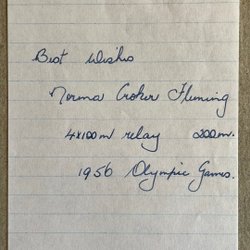 Best Wishes
Norma Croker Fleming
4x100m relay 200m.
1956 Olympic Games.